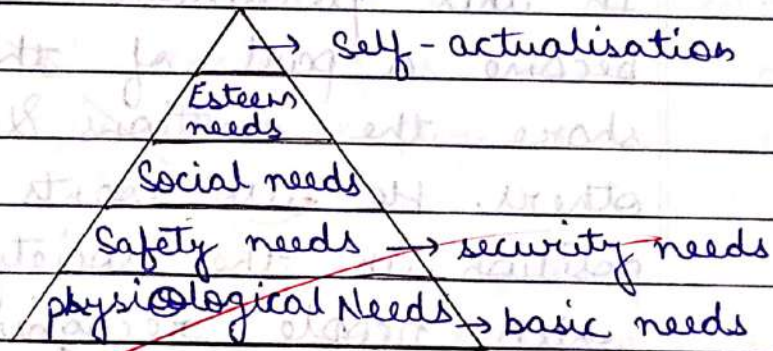 → Self-actualisation
Esteem
needs
Social needs
Safety needs → security needs
physiological Needs → basic needs